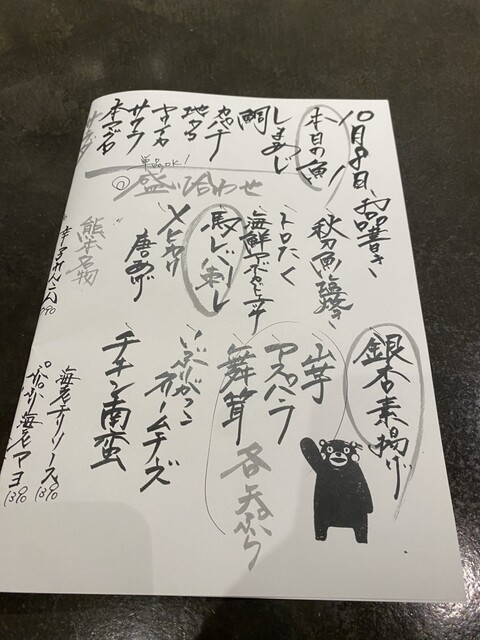 10月9日、お品書き
本日の魚
しまあじ
鯛
カンパチ
地タコ
ヤリイカ
サワラ
本マグロ
単品OK!
の盛り合わせ
秋刀魚塩焼き
トロたく
海鮮アボカドユッケ
馬レバー刺し
〆さば
唐あげ
熊本名物
辛子れんこん
銀杏素揚げ
山芋
アスパラ
舞茸
各天ぷら
いぶりがっこ
クリームチーズ
チキン南蛮
海老チリソース
1390
ぷりぷり海老マヨ
1390